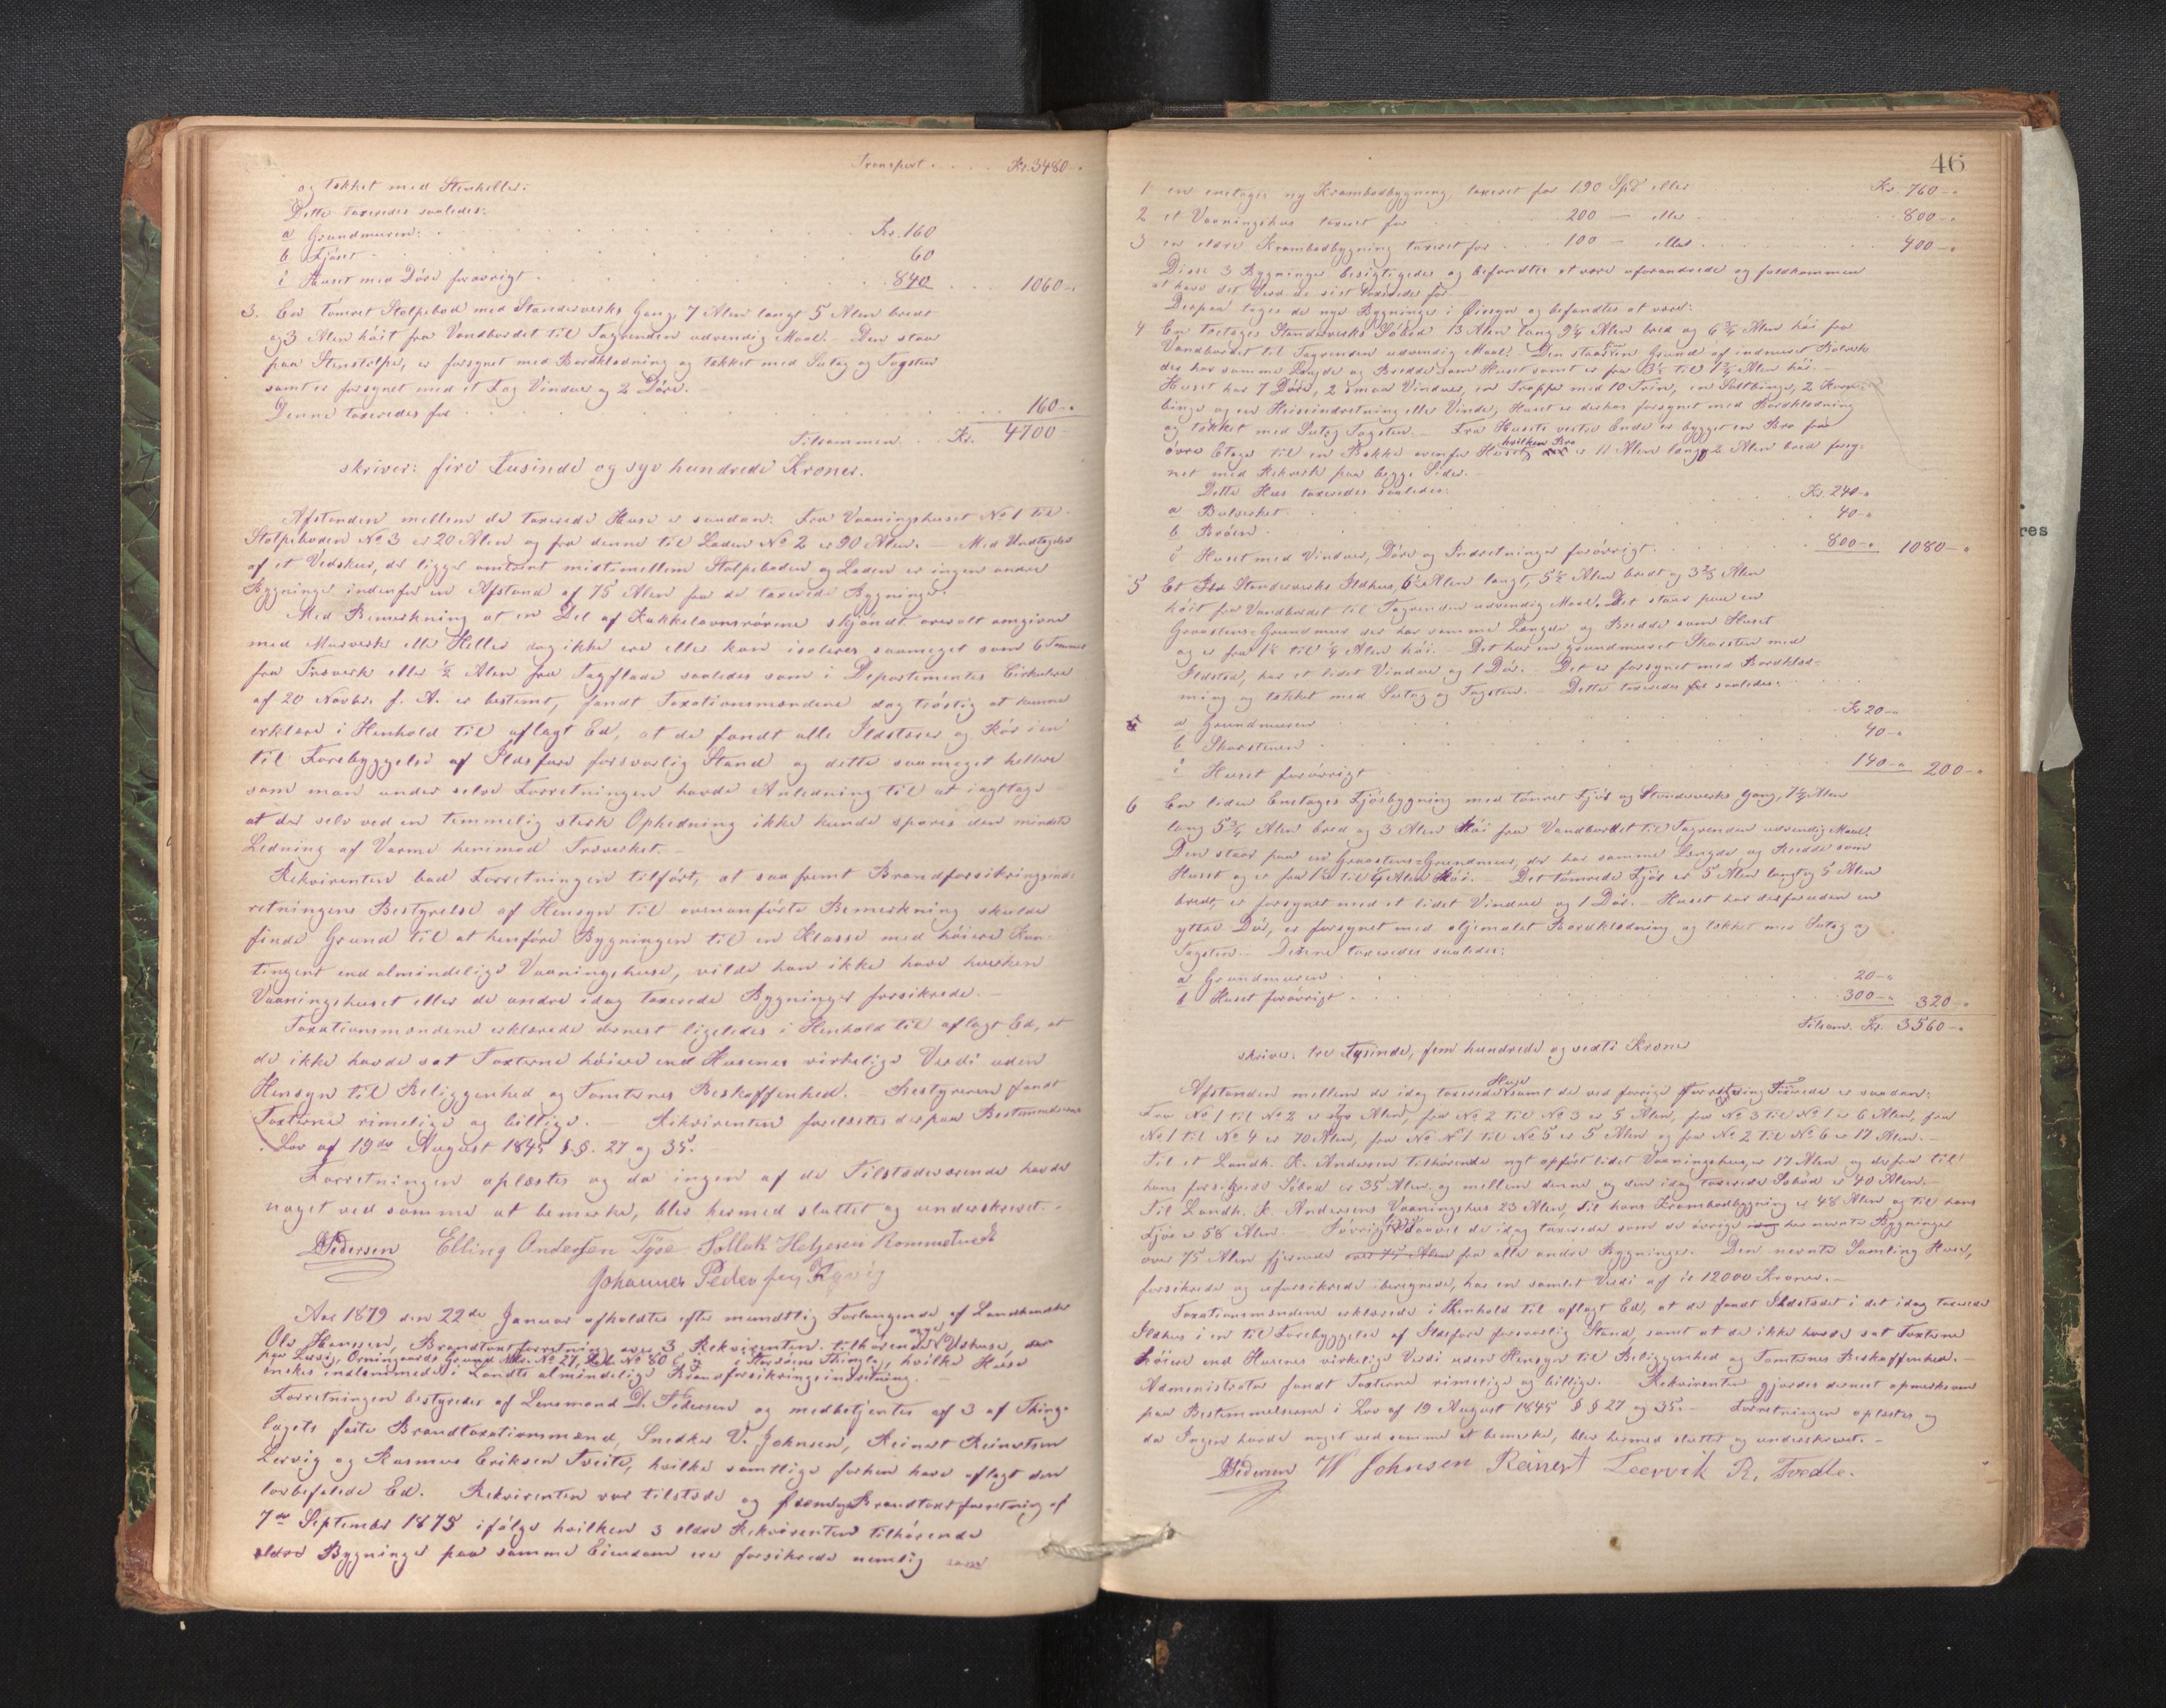 Transport . . . . Kr. 3480-"
og tækket med Stenheller:
Dette taxeredes saaledes:
a Grundmuren: . . . Kr. 160
b Fjöset . . . 60
c Huset med Döre forövrigt . . . 840 . . . 1060-"
3. En tömret Stolpebod med Standerverks Gang, 7 Alen langt 5 Alen bredt
og 3 Alen höit fra Vandbordet til Tagrenden udvendig Maal. Den staar
paa Stenstolper, er forsynet med Bordklædning og tækket med Sutag og Tagsten
samt er forsynet med et Fag Vinduer og 2 Döre.
Denne taxeredes for . . . 160-"
Tilsammen . . Kr. 4700-
skriver: fire Tusinde og syv hundrede Kroner.
Afstanden mellem de taxerede Huse er saadan: Fra Vaaningshuset No 1 til
Stolpeboden No 3 er 20 Alen og fra denne til Laden No 2 er 90 Alen. — Med Undtagelse
af et Vedskur, der ligger omtrent midt imellem Stolpeboden og Laden er ingen andre
Bygninger indenfor en Afstand af 75 Alen fra de taxerede Bygninger.
Med Bemærkning at en Del af Kakkelovnsrörene skjöndt overalt omgivne
med Murverk eller Heller dog ikke ere eller kan isoleres saameget som 6 Tommer
fra Træverk eller ½ Alen fra Tagflade saaledes som i Departementets Cirkulære
af 20 Novbr. f. A. er bestemt, fandt Taxationsmændene dog tröstig at kunne
erklære i Henhold til aflagt Ed, at de fandt alle Ildsteder og Rör i en
til Forebyggelse af Ildsfare forsvarlig Stand og dette saameget hellere
som man under selve Forretningen havde Anledning til at iagttage
at der selv ved en temmelig sterk Ophedning ikke kunde spores den mindste
Ledning af Varme henimod Træverket. —
Rekvirenten bad Forretningen tilfört, at saafremt Brandforsikringsind-
retningens Bestyrelse af Hensyn til ovenanförte Bemerkning skulde
finde Grund til at henföre Bygningen til en Klasse med höiere Kon-
tingent end almindelige Vaaningshuse, vilde han ikke have hverken
Vaaningshuset eller de andre idag taxerede Bygninger forsikrede. —
Taxationsmændene erklærede dernest ligeledes i Henhold til aflagt Ed, at
de ikke havde sat Taxterne höiere end Husenes virkelige Verdi uden
Hensyn til Beliggenhed og Tomternes Beskaffenhed. — Bestyreren fandt
Taxterne rimelige og billige. — Rekvirenten forelæstes derpaa Bestemmelserne
i Lov af 19de August 1845 §.§. 27 og 35.
Forretningen oplæstes og da ingen af de Tilstedeværende havde
noget ved samme at bemærke, blev hermed sluttet og underskrevet. -
D Pedersen Elling Andersen Tyse Sollak Heljesen Rommetvedt
Johannes Pedersen Rysvig
Aar 1879 den 22de Januar afholdtes efter mundtlig Forlangende af Landhandler
Ole Hansen, Brandtaxtforretning over 3 Rekvirenten tilhörende nye Udhuse,
paa Lervig, Orningaards Grund Matr. No 27, Löb No 80 i Stordöens Thinglag, hvilke Huse
önskes indlemmede i Landets almindelige Brandforsikringsindretning. —
Forretningen bestyredes af Lensmand D. Pedersen og medbetjentes af 3 af Thing-
lagets faste Brandtaxationsmænd, Snedker V. Johnsen, Reinert Reinertsen
Lervig og Rasmus Eriksen Tveite, hvilke samtlige forhen have aflagt den
lovbefalede Ed. Rekvirenten var tilstede og fremlagde Brandtaxtforretning af
7de September 1875 ifölge hvilken 3 ældre Rekvirenten tilhörende
ældre Bygninger paa samme Eiendom ere forsikrede nemlig
46
1 en enetages ny Krambodbygning, taxeret for 190 Spd eller . . . Kr. 760-"
2 et Vaaningshus taxeret for . . . 200 — eller . . . 800-"
3 en ældre Krambodbygning taxeret for . . . 100 — eller . . . 400-"
Disse 3 Bygninger besigtigedes og befandtes at være uforandrede og fuldkommen
at have det Verd de sist taxeredes for. —
Derpaa toges de nye Bygninger i Öiesyn og befandtes at være:
4 En toetages Standerverks Söbod 13 Alen lang 9¼ Alen bred og 6¾ Alen höi fra
Vandbordet til Tagrenden udvendig Maal. Den staar paa en Grund af indmuret Bolverk
der har samme Længde og Bredde som Huset samt er fra 3½ til 1¾ Alen höi. —
Huset har 7 Döre, 2 smaa Vinduer, en Trappe med 10 Trin, en Saltbinge, 2 Korn-
binger og en Heiseindretning eller Vinde, Huset er derhos forsynet med Bordklædning
og tækket med Sutag Tagsten. — Fra Husets vestre Ende er bygget en Bro fra
övre Etage til en Bakke ovenfor Huset, hvilken Bro er 11 Alen lang, 2 Alen bred forsy-
net med Rekverk paa begge Sider. —
Dette Hus taxeredes saaledes:
a Bolverket . . . Kr. 240-"
b Broen . . . 40-"
c Huset med Vinduer, Döre og Indretninger forövrigt . . . 800-" 1080-"
5 Et Standerverks Ildhus, 6½ Alen langt, 5½ Alen bredt og 3⅔ Alen
höit fra Vandbordet til Tagrenden udvendig Maal. Det staar paa en
Graastens-Grundmur der har samme Længde og Bredde som Huset
og er fra 1½ til ¼ Alen höi. — Det har en grundmuret Skorsten med
Ildsted, har et lidet Vindue og 1 Dör. — Det er forsynet med Bordklæd-
ning og tækket med Sutag og Tagsten. — Dette taxeredes saaledes:
a Grundmuren . . . Kr 20-"
b Skorstenen . . . 40-"
c Huset forövrigt . . . 140-" 200-"
6 En liden Enetages Fjösbygning med tömret Fjös og Standerverks Gang, 7½ Alen
lang 5¾ Alen bred og 3 Alen höi fra Vandbordet til Tagrenden udvendig Maal.
Den staar paa en Graastens-Grundmur, der har samme Længde og Bredde som
Huset og er fra 1½ til ¼ Alen höi. — Det tömrede Fjös er 5 Alen langt og 5 Alen
bredt, er forsynet med et lidet Vindue og 1 Dör. — Huset har desforuden en
ytter Dör, er forsynet med oljemalet Bordklædning og tækket med Sutag og
Tagsten. — Denne taxeredes saaledes:
a Grundmuren . . . 20-"
b Huset forövrigt . . . 300-" 320-"
Tilsam. Kr. 3560-"
skriver: tre Tusinde, fem hundrede og sexti Kroner
Afstanden mellem de idag taxerede Huse samt de ved forrige Forretning Taxerede er saadan:
Fra No 1 til No 2 er syv Alen, fra No 2 til No 3 er 5 Alen, fra No 3 til No 1 er 6 Alen, fra
No 1 til No 4 er 70 Alen, fra No 1 til No 5 er 5 Alen og fra No 2 til No 6 er 17 Alen. —
Til et Landh. K. Andersen tilhörende nyt opfört lidet Vaaningshus, er 17 Alen og derfra til
hans forsikrede Söbod er 35 Alen og mellem denne og den idag taxerede Söbod er 40 Alen. —
Til Landh. K. Andersens Vaaningshus 23 Alen, til hans Krambodbygning er 48 Alen og til hans
Fjös er 58 Alen. — Iövrigt er saavel de idag taxerede som de övrige her nevnte Bygninger
over 75 Alen fjernede fra alle andre Bygninger. Den nevnte Samling Huse,
forsikrede og uforsikrede iberegnede, har en samlet Verdi af ca 12000 Kroner. —
Taxationsmændene erklærede i Henhold til aflagt Ed, at de fandt Ildstedet i det idag taxerede
Ildhus i en til Forebyggelse af Ildsfare forsvarlig Stand, samt at de ikke havde sat Taxterne
höiere end Husenes virkelige Verdi uden Hensyn til Beliggenhed og Tomternes Beskaffenhed. —
Administrator fandt Taxterne rimelige og billige. — Rekvirenten gjordes dernest opmerksom
paa Bestemmelserne i Lov af 19 August 1845 §§ 27 og 35. — Forretningen oplæstes og
da Ingen havde noget ved samme at bemerke, blev hermed sluttet og underskrevet. —
D Pedersen W Johnsen Reinert Leervik R. Tvedte.
res